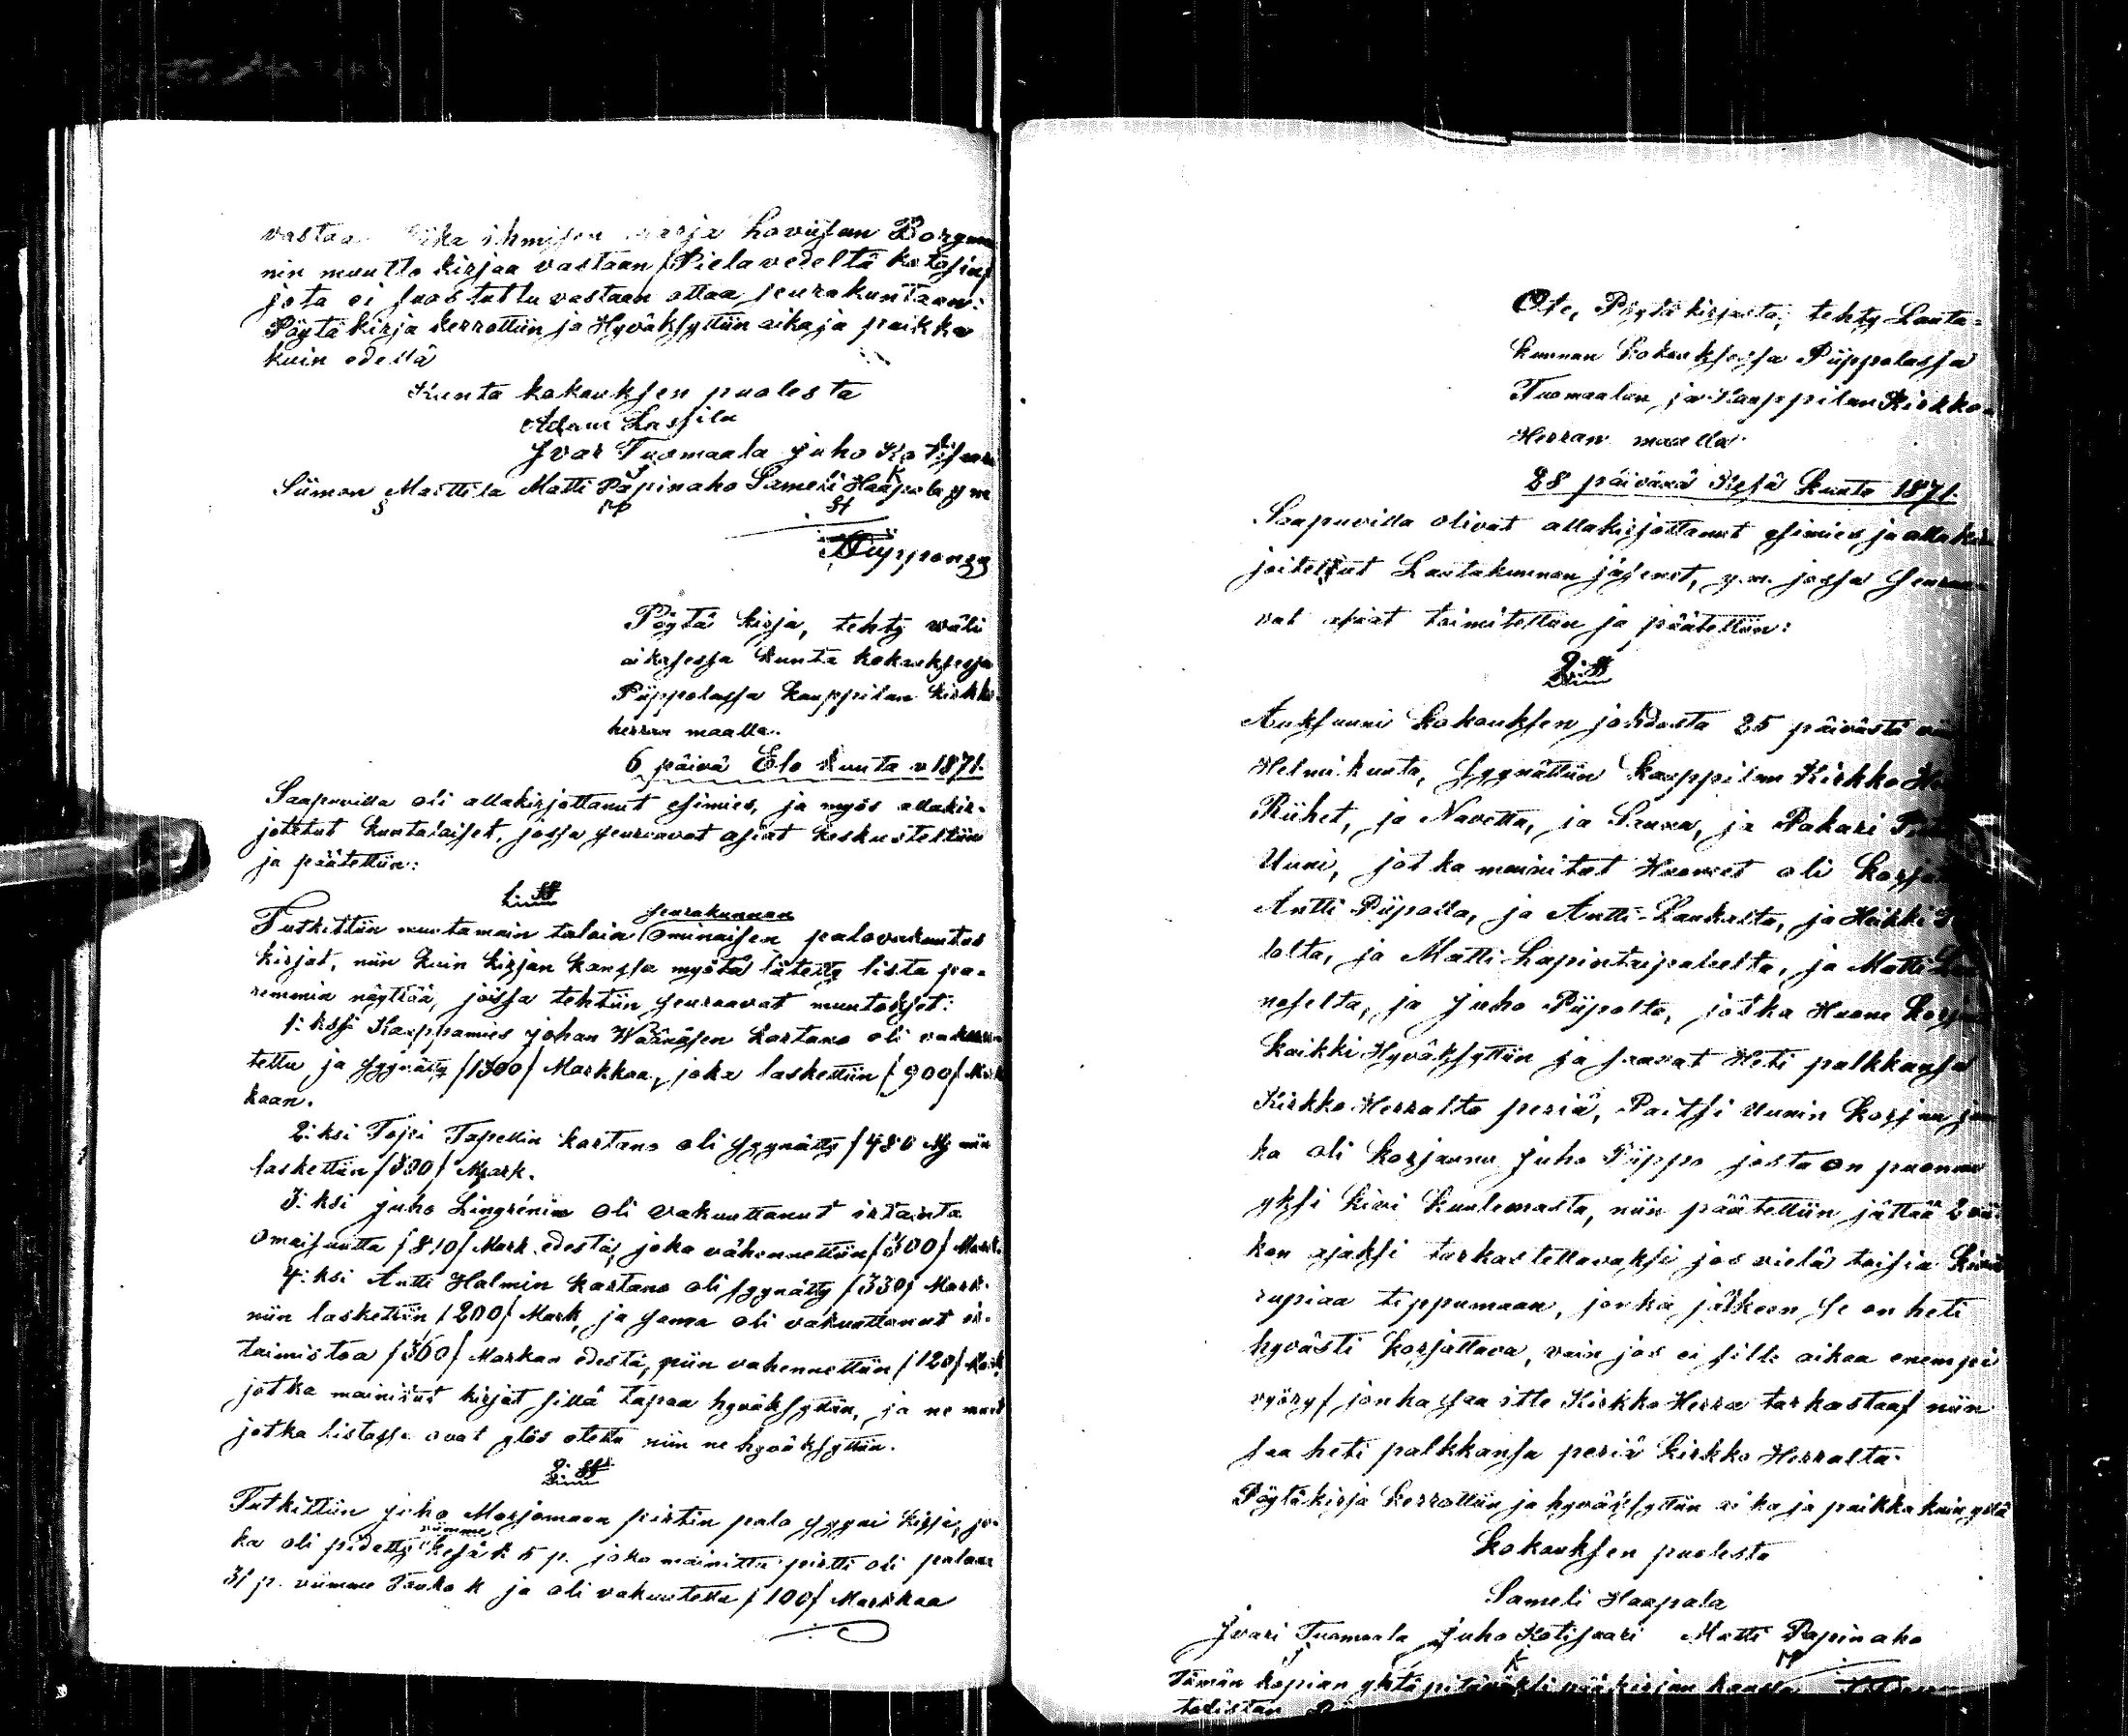 vastaan ihmisen Lovisan Borgma
nin muutto kirjaa vastaan /Pielavedeltä kotosin/
jota ei suostuttu vastaan ottaa seurakuntaan:
Pöytäkirja kerrottiin ja Hyväksyttiin aika ja paikka
kuin edellä
Kunta kokouksen puolesta
Adam Lassila
Ivar Tuomaala Juho Kotisaari
Siimon Marttila Matti Papinaho Sameli Haapala y m
Piipponen
Pöytä kirja, tehty väli
aikasessa Kunta kokouksessa
Piippolassa Kauppilan Kirkko
herran maalla.
6 päivä Elo Kuuta v 1871.
Saapuvilla oli allakirjottanut esimies, ja myös allakir-
jotetut kuntalaiset, jossa seuraavat asiat keskusteltiin
ja päätettiin:
1:§
seurakunnan
Tutkittiin muutamain taloin ominaisen palovakuutus
kirjat, niin kuin kirjan kanssa myötä lähtetty lista pa-
remmin näyttää, joissa tehtiin seuraavat muutokset:
1:ksi Kauppamies Johan Wäänäsen kartano oli vakuu
tettu ja syynätty /1300/ Markkaa, joka laskettiin /900/ Mark
kaan.
2:ksi Topi Tapellin kartano oli syynätty /480 M niin
laskettiin /300/ Mark.
3:ksi Juho Lingrénin oli vakuuttanut irtainta
omaisuutta /810/ Mark. edestä, joka vähennettiin /300/ Mark.
4:ksi Antti Halmin kartano oli syynätty /330/ Mark.
niin laskettiin /200/ Mark, ja sama oli vakuuttanut ir-
taimistoa /360/ Markan edestä, niin vahennettiin /120/ Mark,
jotka mainitut kirjat sillä tapaa hyväksyttiin, ja ne muut
jotka listassa ovat ylös otettu niin ne hyväksyttiin.
2:§
Tutkittiin Juho Marjomaan pirtin palo syyni kirja, jo-
viimme
ka oli pidetty kesä k 5 p. joka mainittu pirtti oli palanu
31 p. viimme Touko k ja oli vakuutettu /100/ Markkaa
Ote, Pöytäkirjasta, tehty Lauta-
kunnan Kokouksessa Piippolassa
Tuomaalan ja Kauppilan Kirkko-
Herran maalla
28 päivänä Kesä Kuuta 1871.
Saapuvilla olivat allakirjottanut esimies ja allakir
joitettut Lautakunnan jäsenet, y.m. jossa seuraa
vat asiat toimitettiin ja päätettiin:
2:§
Auksuuni Kokouksen johdosta 25 päivästä
Helmikuuta, syynättiin Kauppilan Kirkko
Riihet, ja Navetta, ja Sauna, ja Pakari
Uuni, jotka mainitut Huoneet oli Korja
Antti Piipolla, ja Antti Laukalta, ja Heikki
lolta, ja Matti Lapintaipaleelta, ja Matti
noselta, ja Juho Piipolta, jotka Huone Korja
Kaikki Hyväksyttiin ja saavat Heti palkkansa
Kirkko Herralta periä, Paitsi Uunin Korjuu
ka oli Korjannu Juho Piippo josta on puonnu
yksi Kivi Kuulemasta, niin päätettiin jättää 2 vii
kon ajaksi tarkastettavaksi jos vielä toisia Kiviä
rupiaa tippumaan, jonka jälkeen se on heti
hyvästi Korjattava, vain jos ei sillä aikaa enempi
vyöry/ jonka saa itte Kirkko Herra tarkastaa/ niin
saa heti palkkansa periä Kirkko Herralta.
Pöytäkirja Kerrottiin ja hyväksyttiin aika ja paikka kuin yllä
Kokouksen puolesta
Sameli Haapala
Ivari Tuomaala Juho Kotisaari Matti Papinaho
Tämän kopian yhtäpitäväksi pääkirjan kanssa
todistan